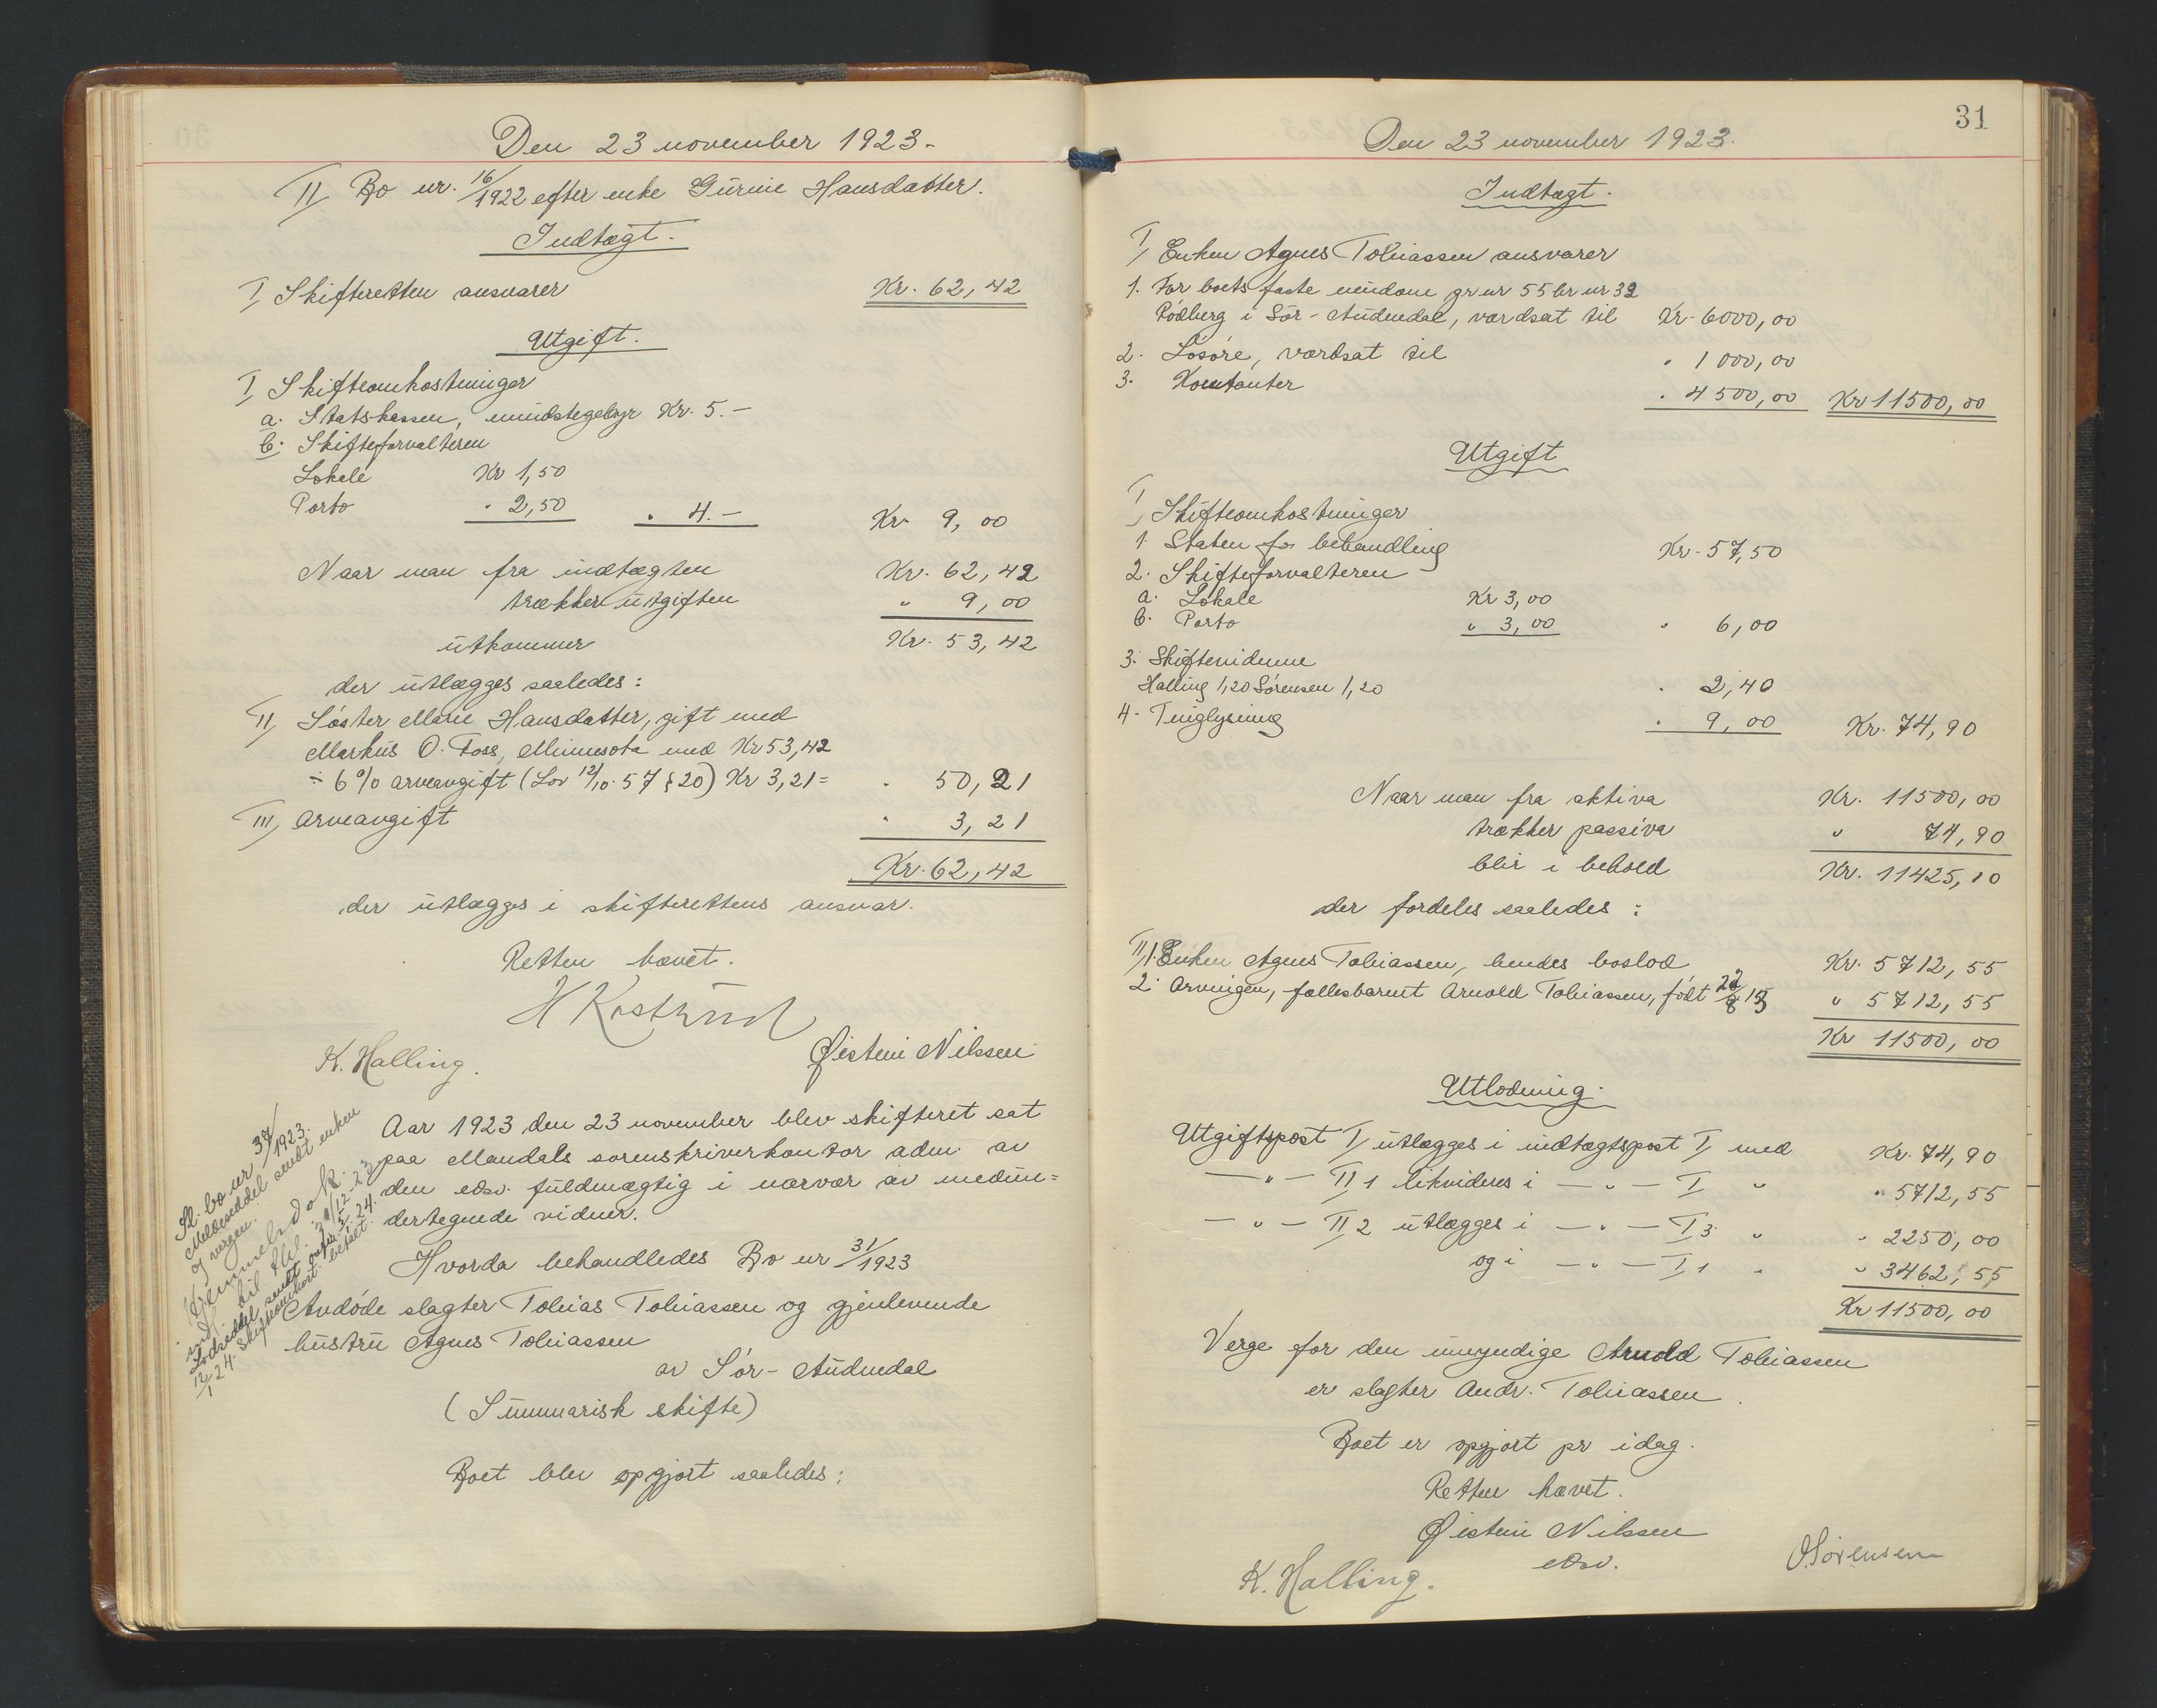 Den 23 november 1923.
II, Bo nr. 16/1922 efter enke Gurine Hansdatter.
Indtægt.
I, Skifteretten ansvarer Kr. 62,42
Utgift.
I, Skifteomkostninger
a. Statskassen, mindstegebyr Kr. 5.-
b. Skifteforvalteren
Lokale Kr 1,50
Porto " 2,50 " 4.- Kr. 9,00
Naar man fra indtægten Kr. 62,42
trækker utgiften " 9,00
utkommer Kr. 53,42
der utlægges saaledes:
II, Søster Marie Hansdatter, gift med
Markus O. Foss, Minnesota med Kr 53,42
÷ 6% arveavgift (Lov 12/10-57 § 20) Kr 3,21 = " 50,21
III, Arveavgift " 3,21
Kr. 62,42
der utlægges i skifterettens ansvar.
Retten hævet.
K. Halling. Øistein Nilssen
Aar 1923 den 23 november blev skifteret sat
paa Mandals sorenskriverkontor adm. av
den edsv. fuldmægtig i nærvær av medun=
dertegnede vidner.
Hvorda behandledes Bo nr 31/1923
Avdøde slagter Tobias Tobiassen og gjenlevende
hustru Agnes Tobiassen
av Sør-Audnedal
(Summarisk skifte)
Boet blev opgjort saaledes:
Sl. bo nr 37/1923.
Meldeseddel sendt enken
og vergen.
Lodseddel sendt
12/1 24. Skifteomkost. betalt.
31
Den 23 november 1923.
Indtægt.
I, Enken Agnes Tobiassen ansvarer
1. For boets faste eiendom gr nr 55 br nr 32
Rødberg i Sør-Audnedal, værdsat til Kr. 6000,00
2. Løsøre, værdsat til " 1000,00
3. Kontanter " 4500,00 Kr 11500,00
Utgift
I, Skifteomkostninger
1. Staten for behandling Kr. 57,50
2. Skifteforvalteren
a. Lokale Kr 3,00
b. Porto " 3,00 " 6,00
3. Skiftevidnene
Halling 1,20 Sørensen 1,20 " 2,40
4. Tinglysning " 9,00 Kr. 74,90
Naar man fra aktiva Kr. 11500,00
trækker passiva " 74,90
blir i behold Kr. 11425,10
der fordeles saaledes:
II, 1. Enken Agnes Tobiassen, hendes boslod Kr. 5712,55
2. Arvingen, fællesbarnet Arnold Tobiassen, født 22/8 13 " 5712,55
Kr 11500,00
Utlodning.
Utgiftspost I, utlægges i indtægtspost I, med Kr. 74,90
— " — II 1 likvideres i — " — I " " 5712,55
— " — II 2 utlægges i — " — I 3 " " 2250,00
og i — " — I 1 " " 3462,55
Kr 11500,00
Verge for den umyndige Arnold Tobiassen
er slagter Andr. Tobiassen.
Boet er opgjort pr idag.
Retten hævet.
Øistein Nilssen
edsv.
K. Halling. O. Sørensen